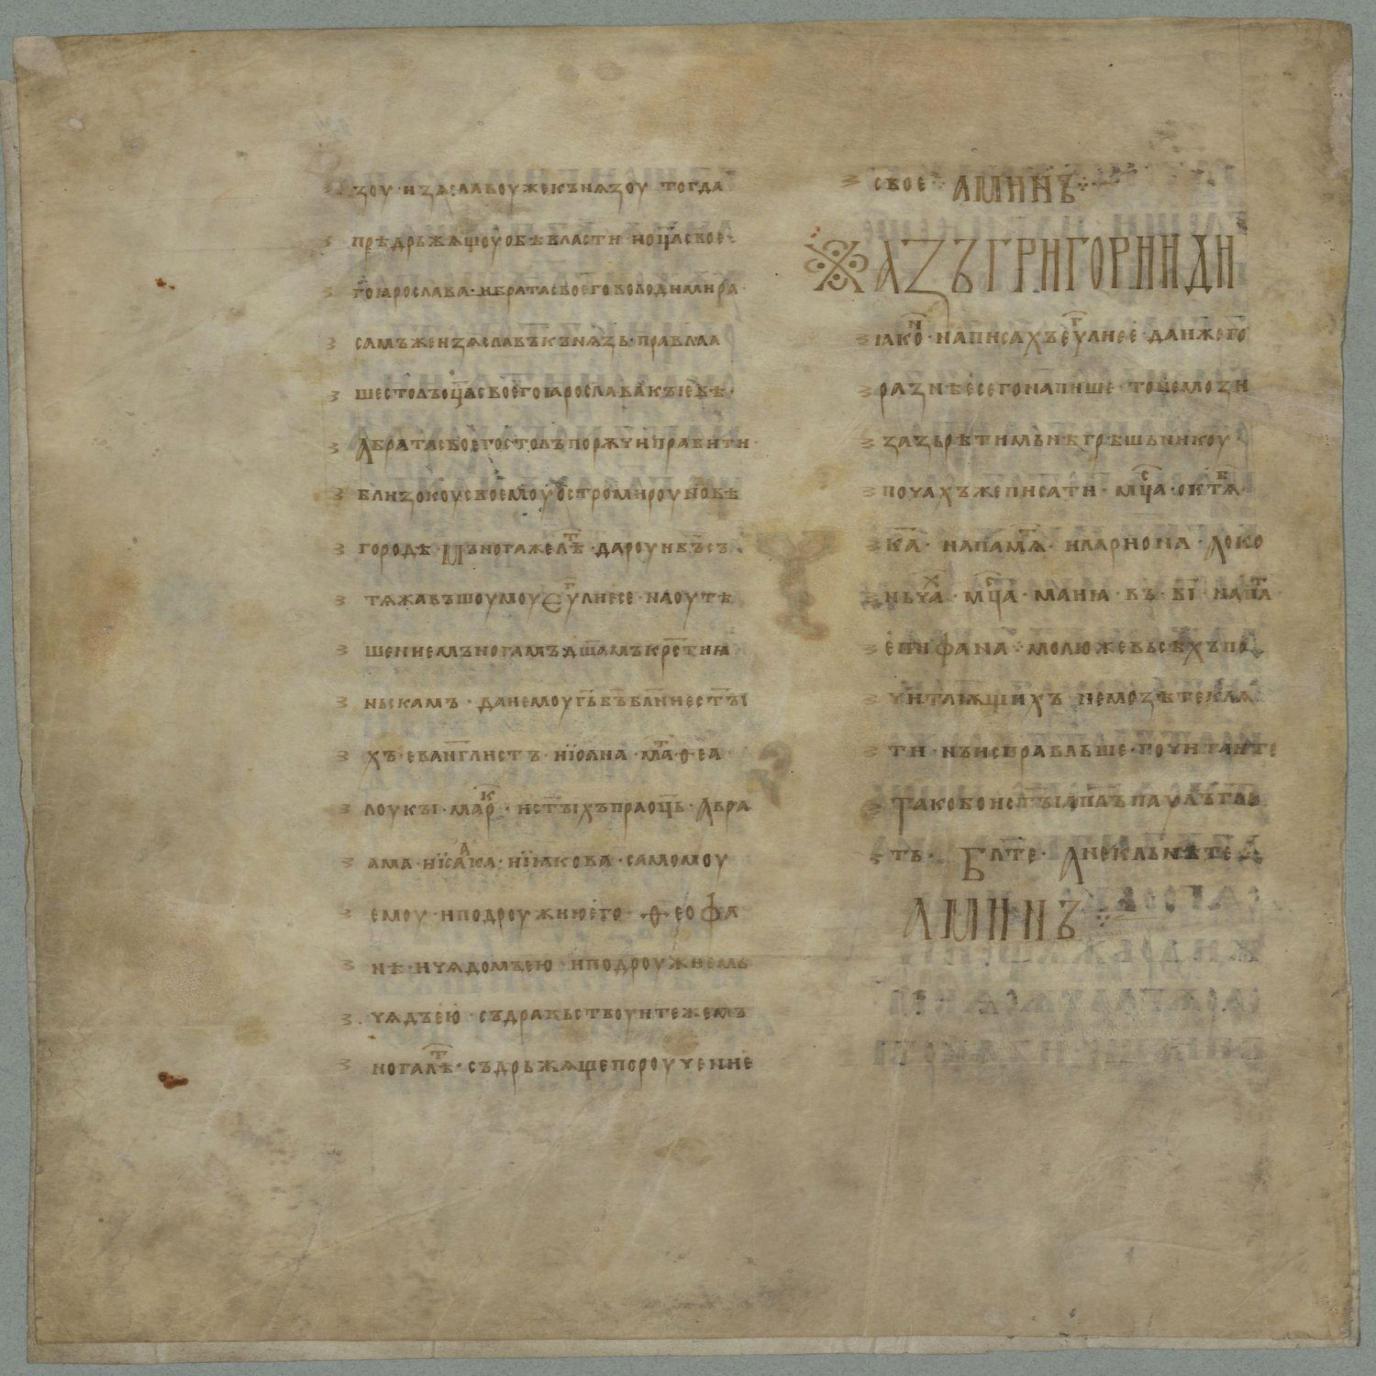 ꙁоу · иꙁѧславоу же кънѧꙁоу тогда
прѣдрьжѧщоу обѣ власти и оц҃а свое
го ꙗрослава · и брата своего володимира ·
самъ же иꙁѧславъ кънѧꙁь · правлꙗа
ше столъ оц҃а своего ꙗрослава кыѥвѣ ·
А брата своего столъ порѫчи правити
близокоу своемоу остромироу новѣ
городѣ · Мъногаже лѣⷮ · дароуи б҃ъ съ
тѧжавъшоумоу Еѵⷢ҇лие се · на оутѣ
шение мъногамъ дш҃амъ крьстиꙗ
ньскамъ · даи емоу гь҃ бъ҃ блгⷭ҇вение ст҃ы
хъ · еваⷩ҇глистъ · иїоана · маⷮ · ѳ · еа ·
лоукы · марⷦ · и ст҃ыхъ праоць · Авра
ама · и їсаⷶка · и їꙗкова · самомоу
емоу · и подроужию его · Ѳеофа
нѣ · и чѧдомъ ею · и подроужиемь
чѧдъ ею · съдравьствоуите же мъ
нога лѣⷮ · съдрьжѧще пороучение
свое ·:· АМИНЪ ·:·
АꙀЪ ГРИГОРИИ ДИ
ꙗкоⷩ · написахъ еѵⷢ҇лие е · да иже го
раꙁнѣе сего напише · то не моꙁи
ꙁаꙁьрѣти мьнѣ грѣшьникоу ·
почахъ же писати · мцⷭ҇а · октѧⷡ ·
к҃а · на памѧⷮ · илариона · А око
ньчаⷯ · мцⷭ҇а · маиꙗ · въ · в҃і · на паⷨ
епифана ·:· молю же вьсѣхъ по
читаѭщихъ не моꙁѣте клѧ
ти · нъ исправльше · почитаите
Тако бо и ст҃ы ап҃лъ паулъ гл҃е
ть · Блⷭ҇те · А не кльнѣте ·:·
АМИНЪ ·:·